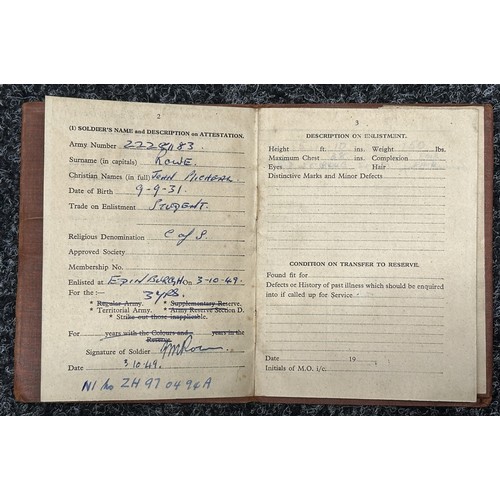 2
(I) SOLDIER'S NAME and DESCRIPTION on ATTESTATION.
Army Number
Surname (in capitals) ROWE.
Christian Names (in full) JOHN MICHEAL
Date of Birth 9-9-31.
Trade on Enlistment STUDENT.
Religious Denomination C of S.
Approved Society
Membership No.
Enlisted at EDINBURGH On 3-10-49.
For the :— 3 YRS.
* Regular Army. * Supplementary Reserve.
* Territorial Army. * Army Reserve Section D.
* Strike out those inapplicable.
For years with the Colours and years in the
Reserve.
Signature of Soldier JM Rowe
Date 3.10.49.
NI No ZH970494A
3
DESCRIPTION ON ENLISTMENT.
Height ft. ins. Weight lbs.
Maximum Chest ins. Complexion
Eyes Hair
Distinctive Marks and Minor Defects
CONDITION ON TRANSFER TO RESERVE.
Found fit for
Defects or History of past illness which should be enquired
into if called up for Service
Date 19
Initials of M.O. i/c.